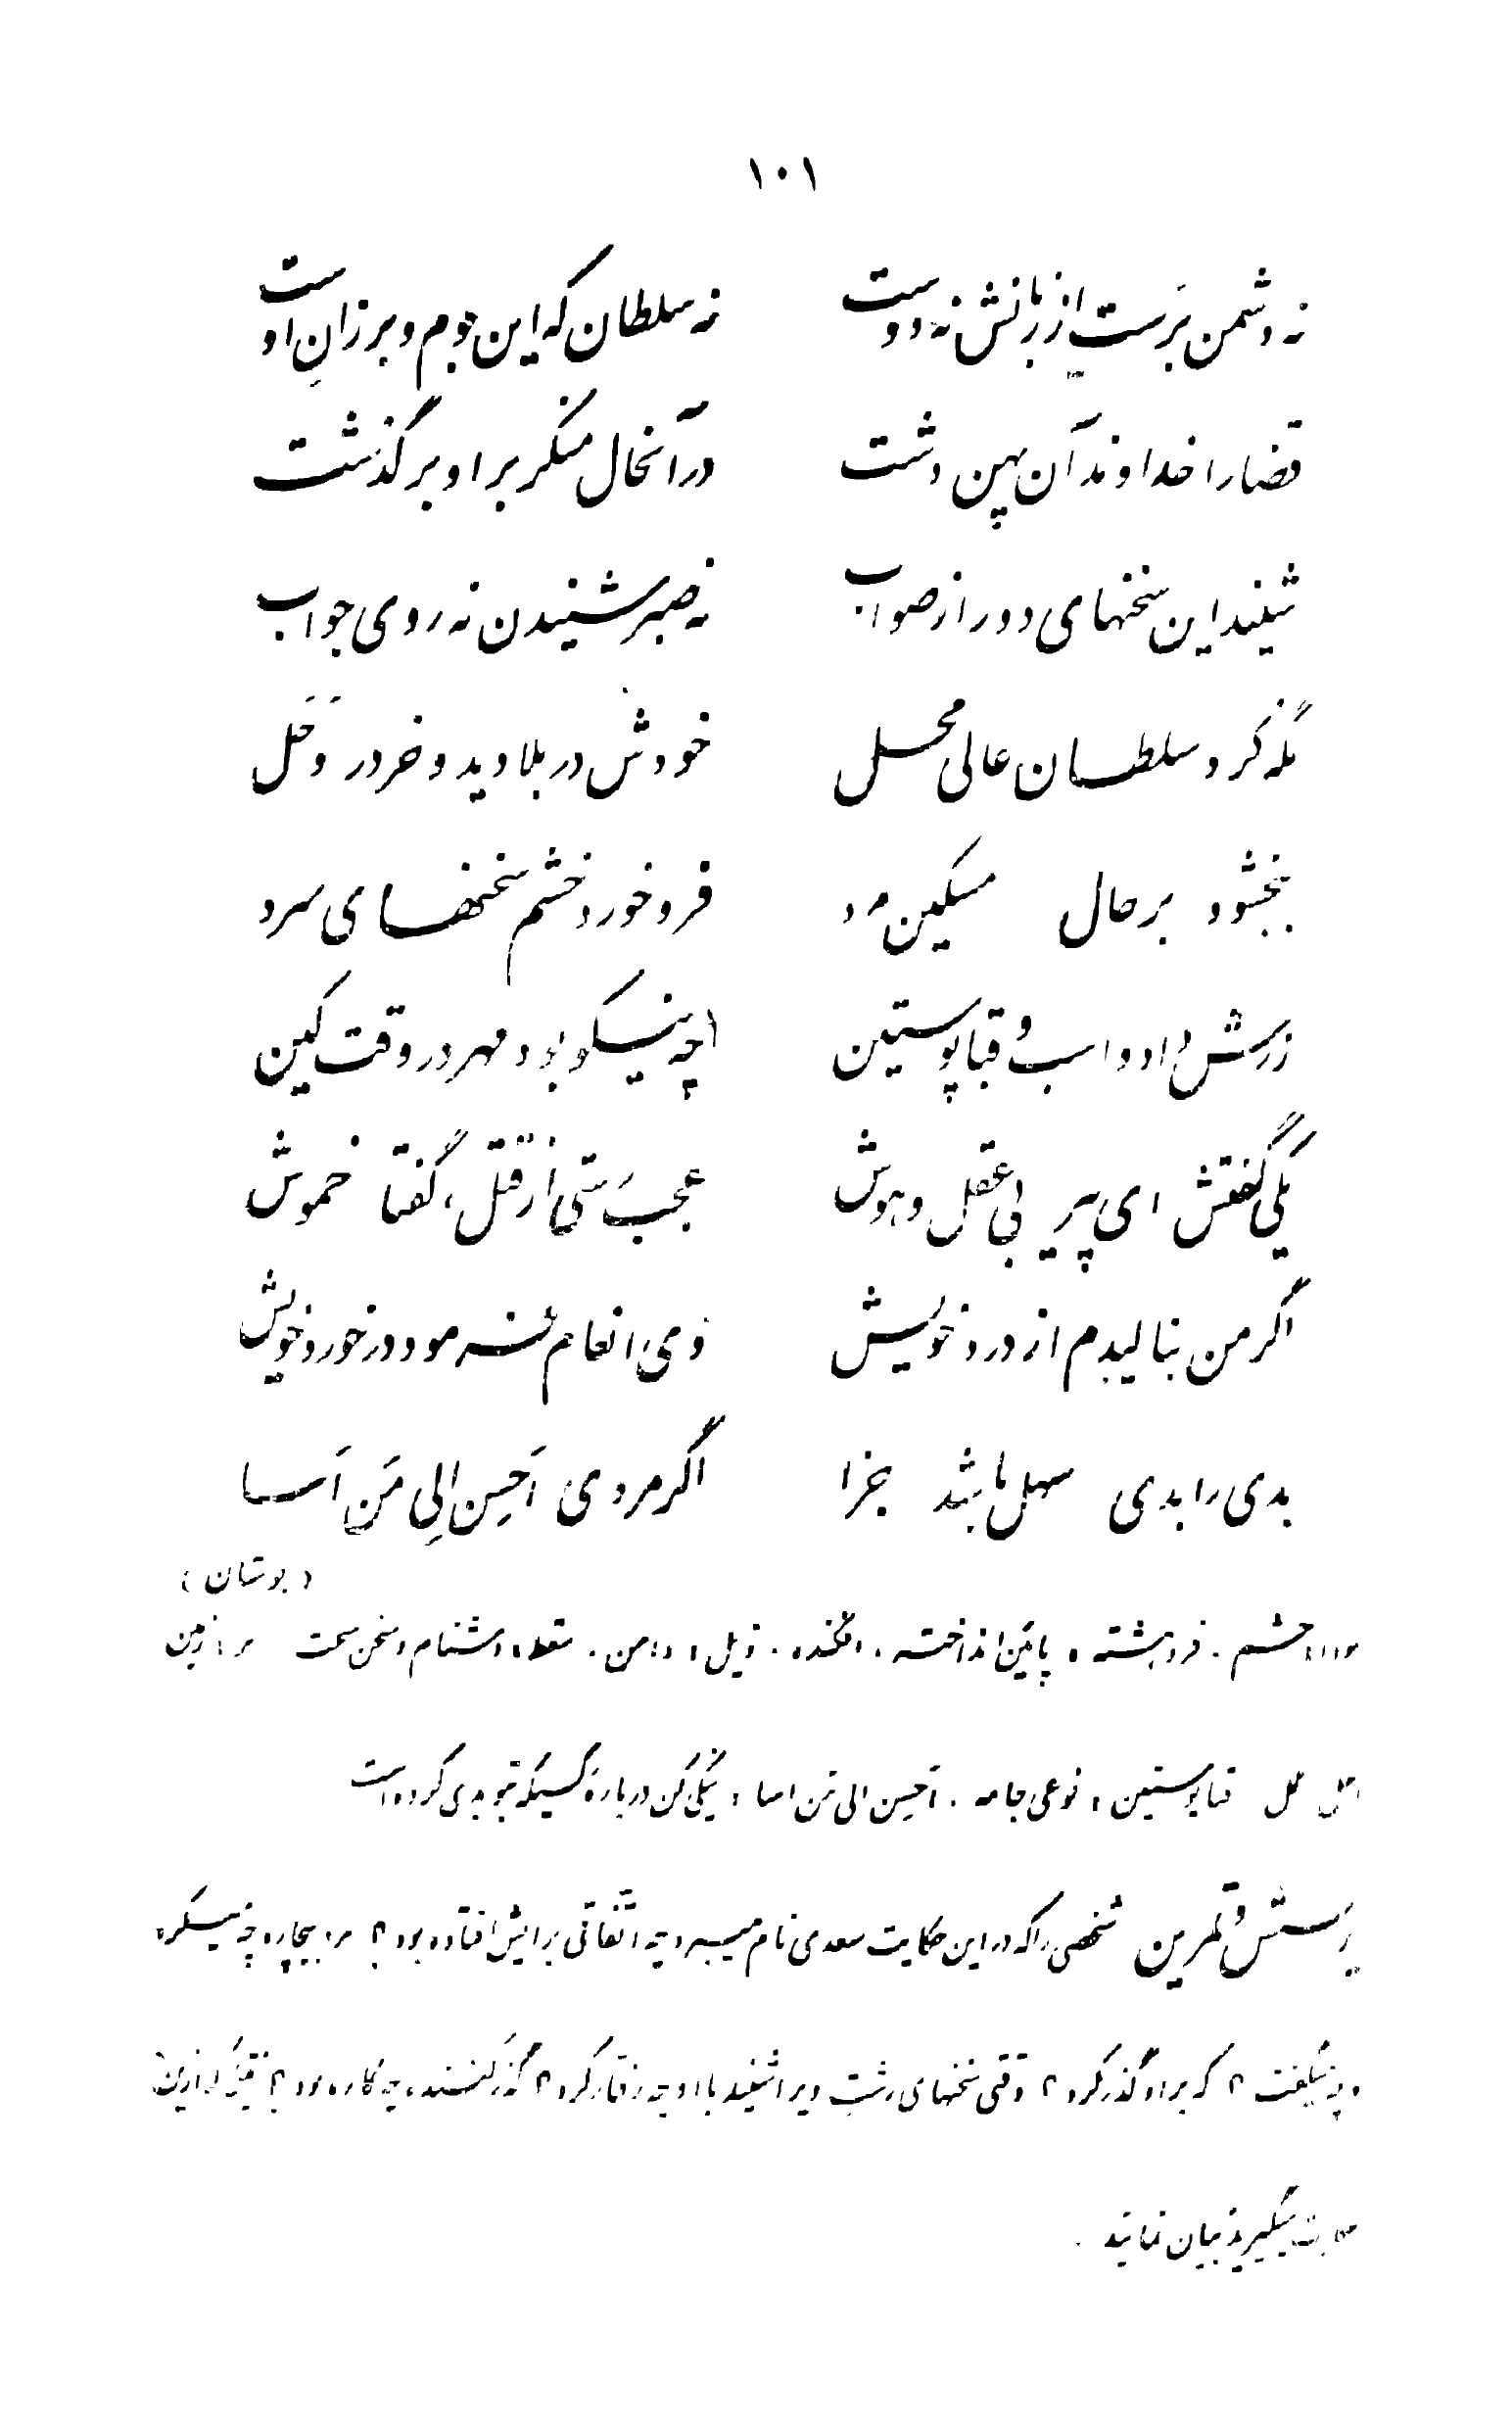 ۱۰۱
نه دشمن برَست از زبانش نه دوست    نه سلطان که این بوم و برزانِ اوست
قضا را خداوند آن پهن دشت    در آنحال منکر بر او بر گذشت
شنید این سخنهای دور از صواب    نه صبر شنیدن نه روی جواب
نگه کرد سلطان عالی محل    خودش در بلا دید و خر در وَحَل
ببخشود بر حال مسکین مرد    فرو خورد خشم سخنهای سرد
زرش داد و اسب و قبا پوستین    چه نیکو بود مهر در وقت کین
یکی گفتش ای پیر بی عقل و هوش    عجب رَستی از قتل، گفتا خموش
اگر من بنالیدم از درد خویش    وی انعام فرمود در خورد خویش
بدی را بدی سهل باشد جزا    اگر مردی اَحسِن اِلی مَن اَسا
(بوستان)
خشم . فروهشته ، پائین انداخته ، افکنده . ذیل ، دامن . سقط ، دشنام و سخن سخت زمین
گل قبا پوستین ، نوعی جامه . اَحسِن الی مَن اسا ، نیکی کن درباره کسیکه بتو بدی کرده است
پرسش و تمرین شخصی را که در این حکایت سعدی نام میبرد چه اتفاقی برایش افتاده بود ؟ مرد بیچاره چه میکرد
و چه میگفت ؟ که بر او گذر کرد ؟ وقتی سخنهای زشت ویرا شنید با او چه رفتار کرد ؟ گذر کننده چه کاره بود ؟ نتیجه‌ای که از این
حکایت میگیرید بیان نمائید .